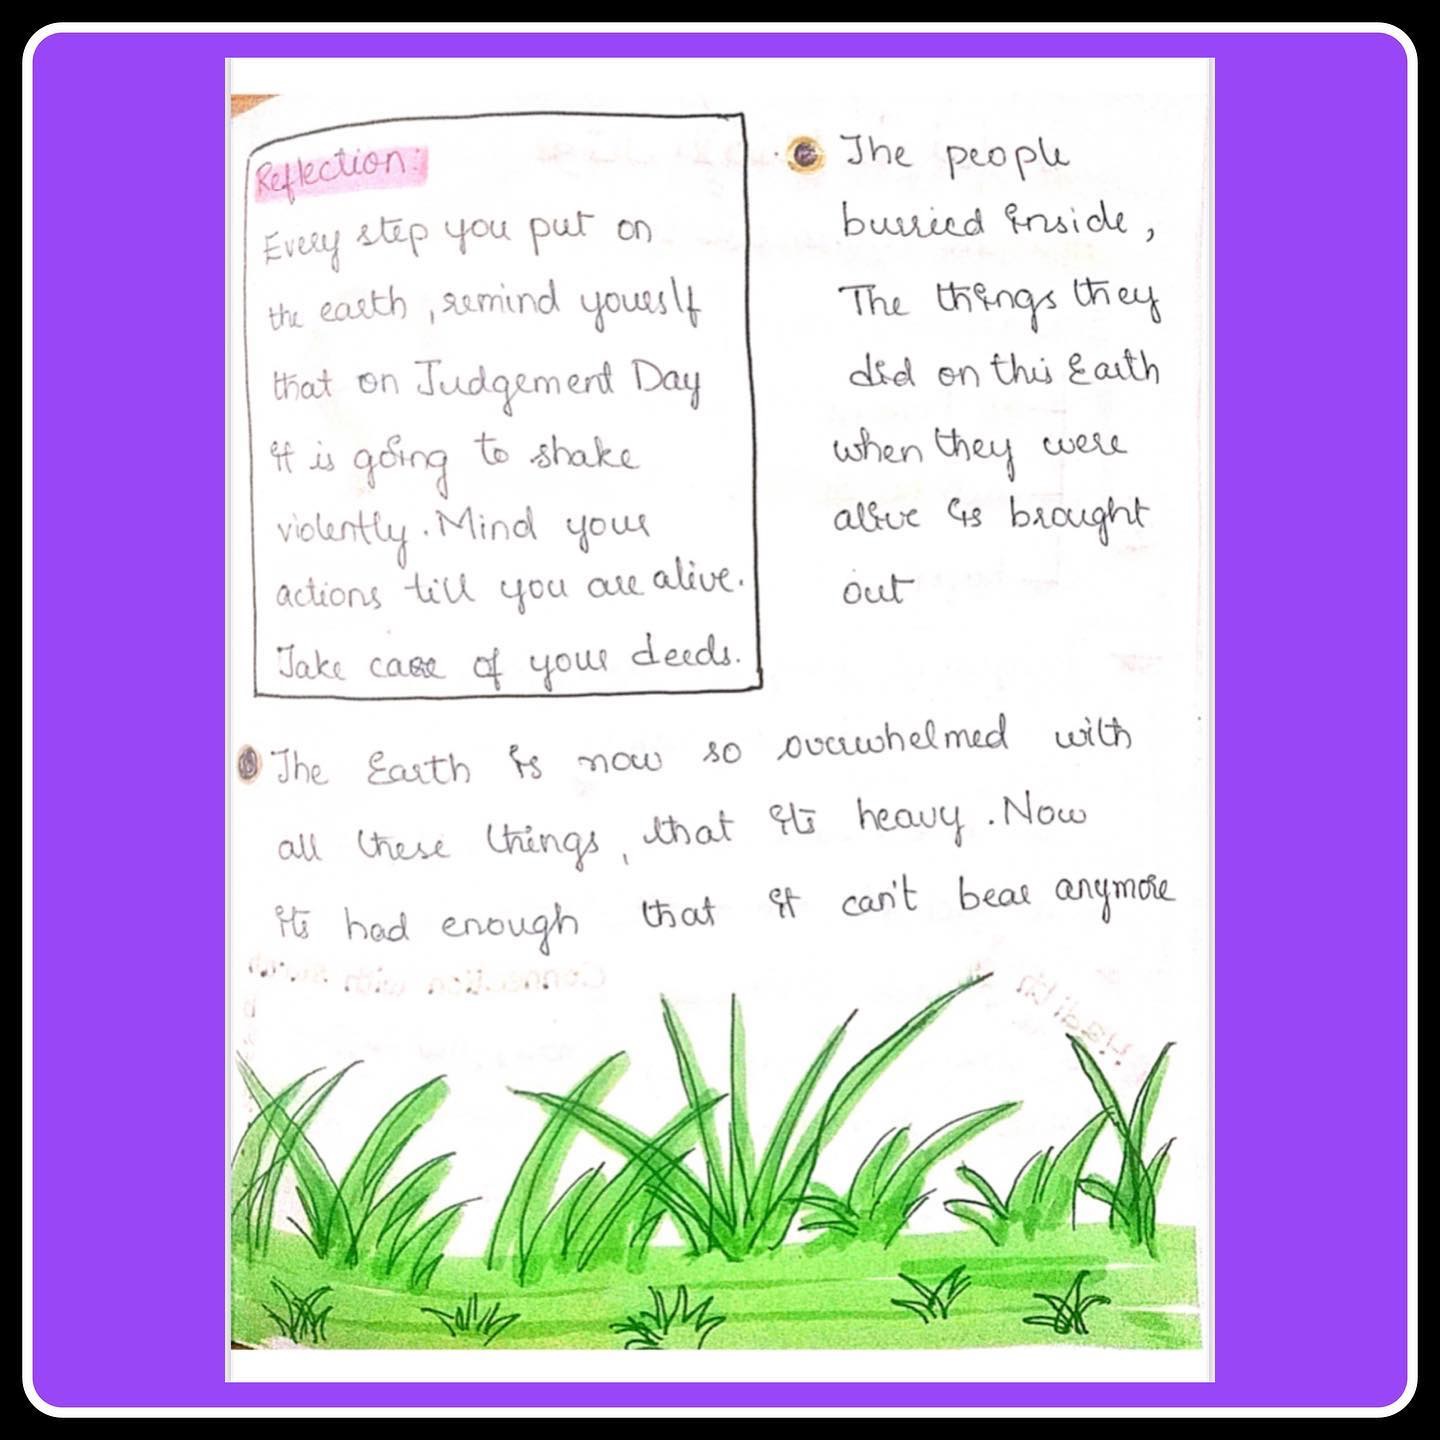 Reflection:
Every step you put on
the earth, remind youeslf
that on Judgement Day
it is going to shake
violently. Mind your
actions till you are alive.
Take care of your deeds.
The people
burried inside,
The things they
did on this Earth
when they were
alive is brought
out
The Earth is now so overwhelmed with
all these things, that its heavy. Now
its had enough that it can't bear anymore